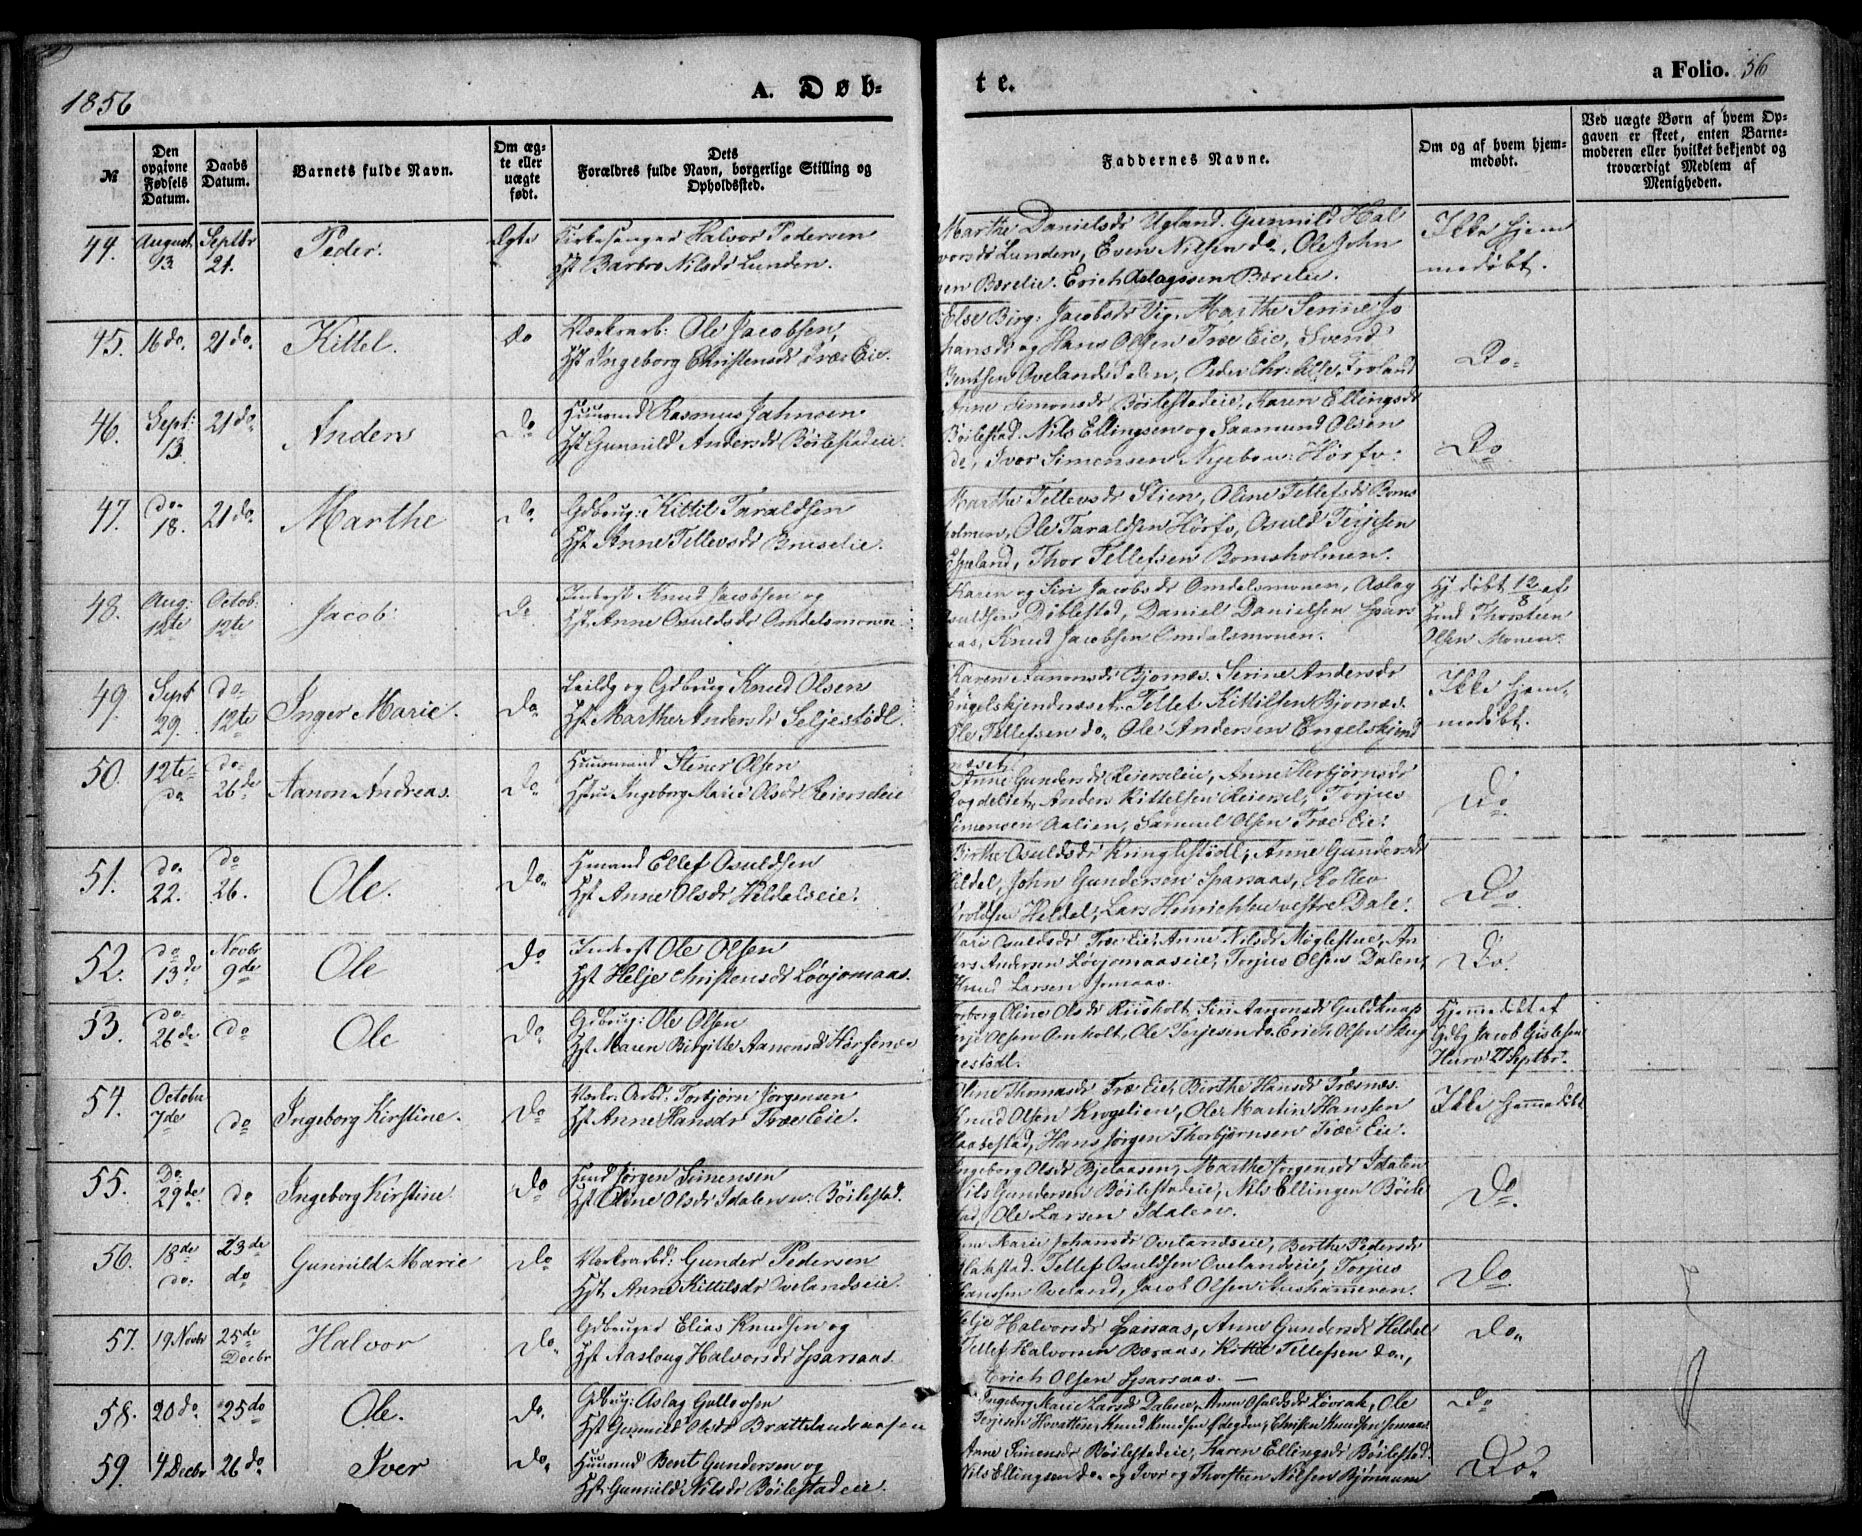 1856
A. Døb-
te.
a Folio. 56
№
Den opgivne Fødsels Datum.
Daabs Datum.
Barnets fulde Navn.
Om ægte eller uægte født.
Dets Forældres fulde Navn, borgerlige Stilling og Opholdssted.
Faddernes Navne.
Om og af hvem hjemmedøbt.
Ved uægte Børn af hvem Opgaven er skeet, enten Barnemoderen eller hvilket bekjendt og troværdigt Medlem af Menigheden.
44. August 13 Septbr 21. Peder. Ægte
Kirkesanger Halvor Pedersen
Hst Barbro Nilsdr Lunden.
Marthe Danielsdr Ugland. Gunnild Hal
vorsdr Lunden, Even Nilsen do, Ole John
sen Bærelie. Erich Aslagssen Bærelie.
Ikke hjem
medøbt.
45. 16 do. 21 do. Kittel. do
Værkarb: Ole Jacobsen,
Hst Ingeborg Christensdr Træe Eie.
Else Birg: Jacobsdr Vig. Marthe Serine Jo
hansdr og Hans Olsen Træe Eie, Svend
Bentsen Ovelands Dalen, Peder Chr: Froland
Do
46. Sept: 13. 21 do. Anders Do
Huusmd Rasmus Jahnsen
Hst Gunnild Andersdr Böilestadeie.
Anne Simonsdr Böilestadeie, Karen Ellingsdr
Böilestad. Nils Ellingsen og Saamund Olsen
do, Ivor Simensen Hörfo:
Do
47. do 18. 21 do. Marthe Do
Gdbrug: Kittil Taraldsen
Hst Anne Tellevsdr Bruselie.
Marthe Tellevsdr Stien, Oline Tellefsdr Boms
holmen, Ole Taraldsen Hörfo, Osuld Terjesen
Espeland, Thor Tellefsen Bomsholmen.
48. Aug: 12te Octob: 12te Jacob do
Inderst Knud Jacobsen og
Hst Anne Osuldsdr Omdelsmonen
Karen og Siri Jacobsdr Omdelsmonen, Aslag
Osuldsen Döblestad, Daniel Danielsen Spars
aas, Knud Jacobsen Omdalsmonen.
Hj døbt 12/8 af
Hmd Thorsteen
Olsen Monen.
49. Sept 29. do 12te Inger Marie. Do
Leildg og Gdbrug Knud Olsen
Hst Marthe Andersdr Seljestödl.
Karen Aanonsdr Bjornæs. Serine Andersdr
Engelskjendnæset. Tellef Kittilsen Bjornæs.
Ole Tellefsen do. Ole Andersen Engelskjend
næset.
Ikke hjem
medøbt.
50. 12te do do 26de Aanon Andreas. Do
Huusmand Stener Olsen
Hstu Ingeborg Marie Olsdr Reierseleie
Anne Gundersdr Reierseleie, Anne Herbjörnsdr
Anders Kittelsen Reiersel, Torjus
Simensen Aalien, Samuel Olsen Træe Eie.
Do
51. do 22. do 26. Ole. Do
Hmand Ellef Osuldsen
Hst Anne Olsdr Heldalseie.
Birthe Osuldsdr Kringlestödl, Anne Gundersdr
Heldel, John Gundersen Sparsaas, Rollev
Heldel, Lars Henrichsen vestre Dale.
Do
52. do 13de Novbr 9de Ole Do
Inderst Ole Olsen
Hst Helje Christensdr Lövjomaas.
Kari Osuldsdr Træe Eie, Anne Nilsdr Möglestue, An
ders Andersen Lövjomaaseie, Torjus Olsen Dalen,
Knud Larsen Jomaas.
Do.
53. do 26de do Ole Do
Gdbrug: Ole Olsen
Hst Maren Birgitte Aanonsdr
Torborg Oline Olsdr Riisholt, Siri Aanonsdr Guldknap
Terje Olsen Omholt, Ole Terjesen do Erich Olsen
estödl.
Hjemmedøbt af
Gdbg Jacob Gislesen
Hurv 27 Septbr.
54. October 7de do Ingeborg Kirstine. Do
Værk. Arbd. Torbjörn Jörgensen
Hst Anne Hansdr Træe Eie.
Oline Thomasdr Træ Eie, Birthe Hansdr Træsnæs.
Knud Olsen Krogelien, Ole Martin Hansen
Haabestad, Hans Jörgen Thorbjörnsen Træe Eie.
Ikke hjemmedøbt
55. Do. 29de do Ingeborg Kirstine. Do
Hmd Jörgen Simensen
Hst Oline Olsdr Idalen u. Böilestad.
Ingeborg Olsdr Bjelaasen, Marthe Jörgensdr Idalen
Nils Gundersen Böilestadeie, Nils Ellingsen Böile
stad, Ole Larsen Idalen.
Do.
56. 18de do 23de do Gunnild Marie Do
Værkarbd: Gunder Pedersen
Hst. Anne Kittilsdr Ovelandseie.
Marie Johansdr Ovelandseie, Berthe Pedersdr
Blakstad. Tellef Osuldsen Ovelandseie, Torjus
Hanssen Oveland, Jacob Olsen Gushammeren.
Do
57. 19 Novbr 25de Decbr Halvor Do
Gdbruger Elias Knudsen og
Hst Aaslaug Halvorsdr Sparsaas
Helje Halvorsdr Sparsaas, Anne Gundersdr Heldel
Tellef Halvorsen Beraas, Kittil Tellefsen do.,
Erich Olsen Sparsaas.
Do.
58. 20 do 25 do Ole. Do.
Gdbrug: Aslag Gullovsen
Hst Gunnild Olsdr Brattelandsaasen
Ingeborg Marie Larsdr Dalene, Anne Osuldsdr Lövrak, Ole
Terjesen Hovatten, Knud Knudsen Ödegden, Knudsen Jomaas
Do
59. 4 Decbr 26 do Iver Do.
Huusmd Bent Gundersen og
Hst Gunnild Nilsdr Böilestadeie.
Anne Simensdr Böilestadeie, Karen Ellingsdr Böilestad.
Nils Ellingsen do og Ivor og Thorsteen Nilsen Bjönnum
Do.